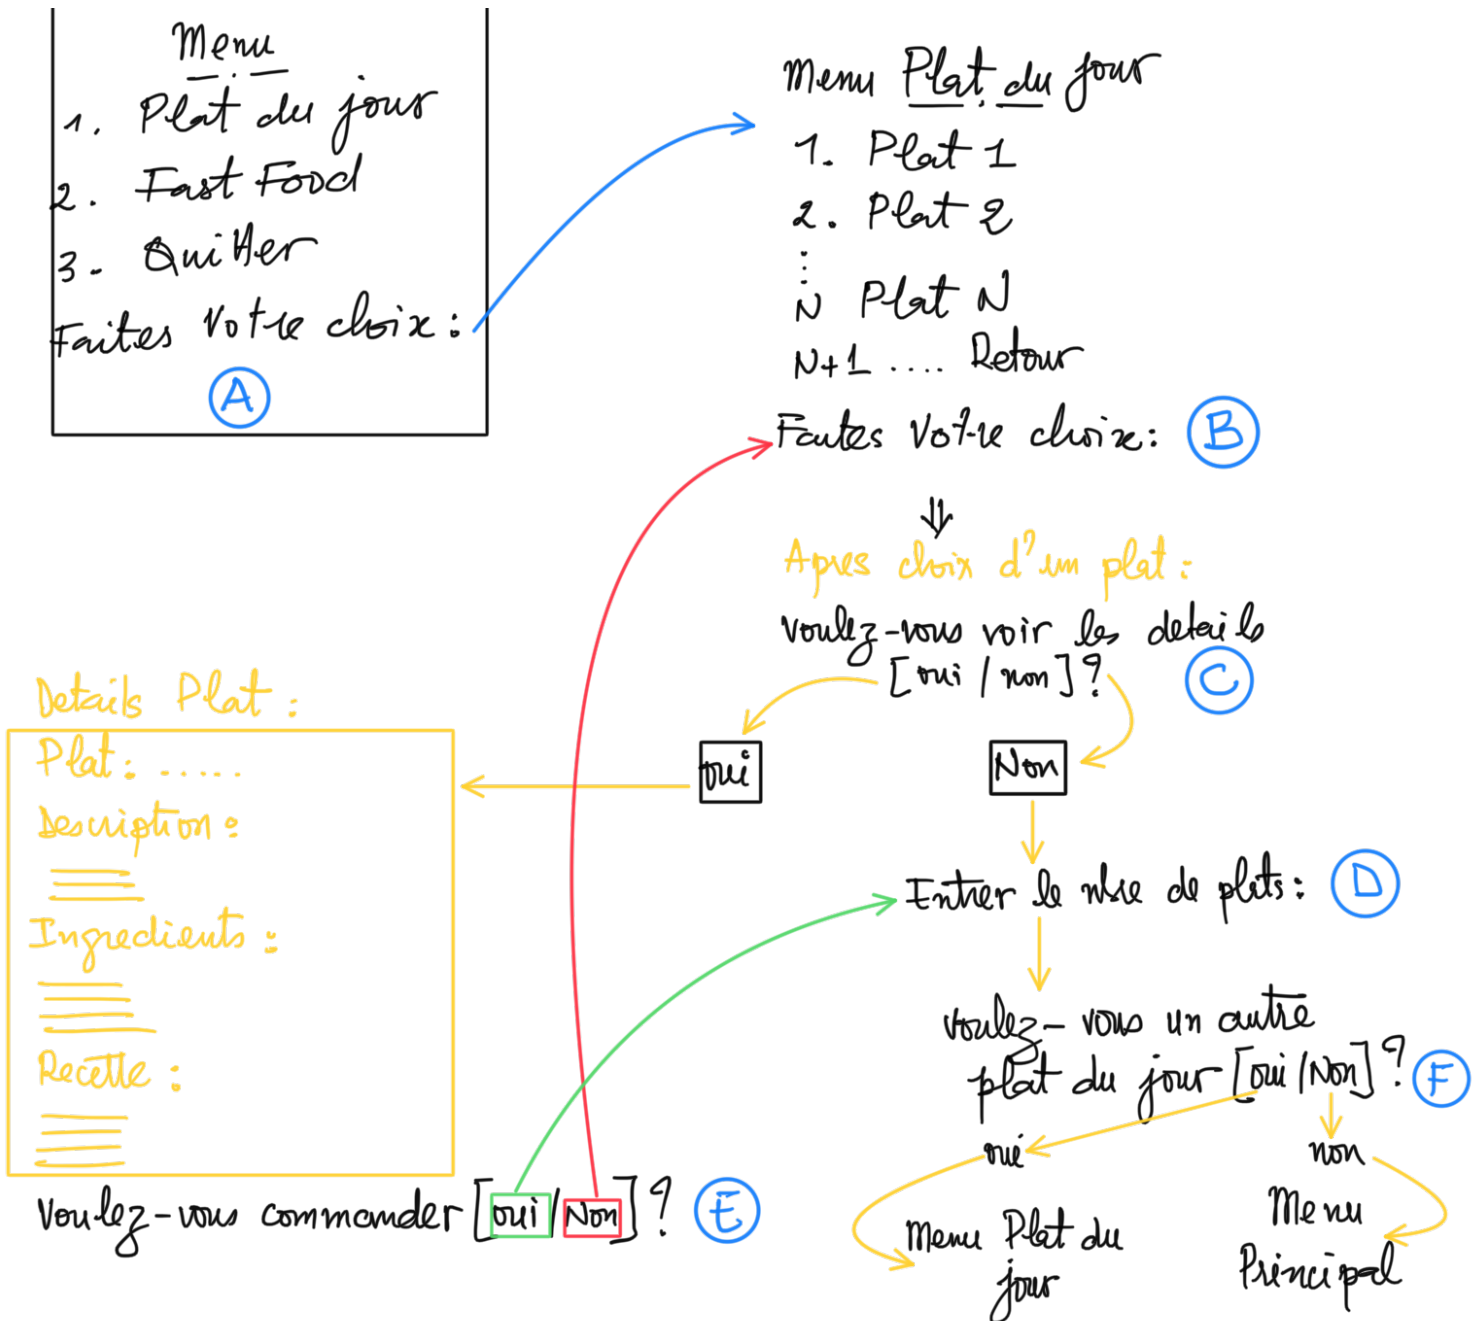 Menu
1. Plat du jour
2. Fast Food
3. Quitter
Faites Votre choix :
A
Menu Plat du jour
1. Plat 1
2. Plat 2
N Plat N
N+1 .... Retour
Faites Votre choix :
B
Apres choix d'un plat :
Voulez-vous voir les details
[oui / non] ?
C
oui
Non
Details Plat :
Plat : ......
Description :
Ingredients :
Recette :
Voulez-vous commander [oui/Non] ?
E
Entrer le nbre de plats :
D
Voulez-vous un autre
plat du jour [oui/Non] ?
F
oui
non
Menu Plat du
jour
Menu
Principal